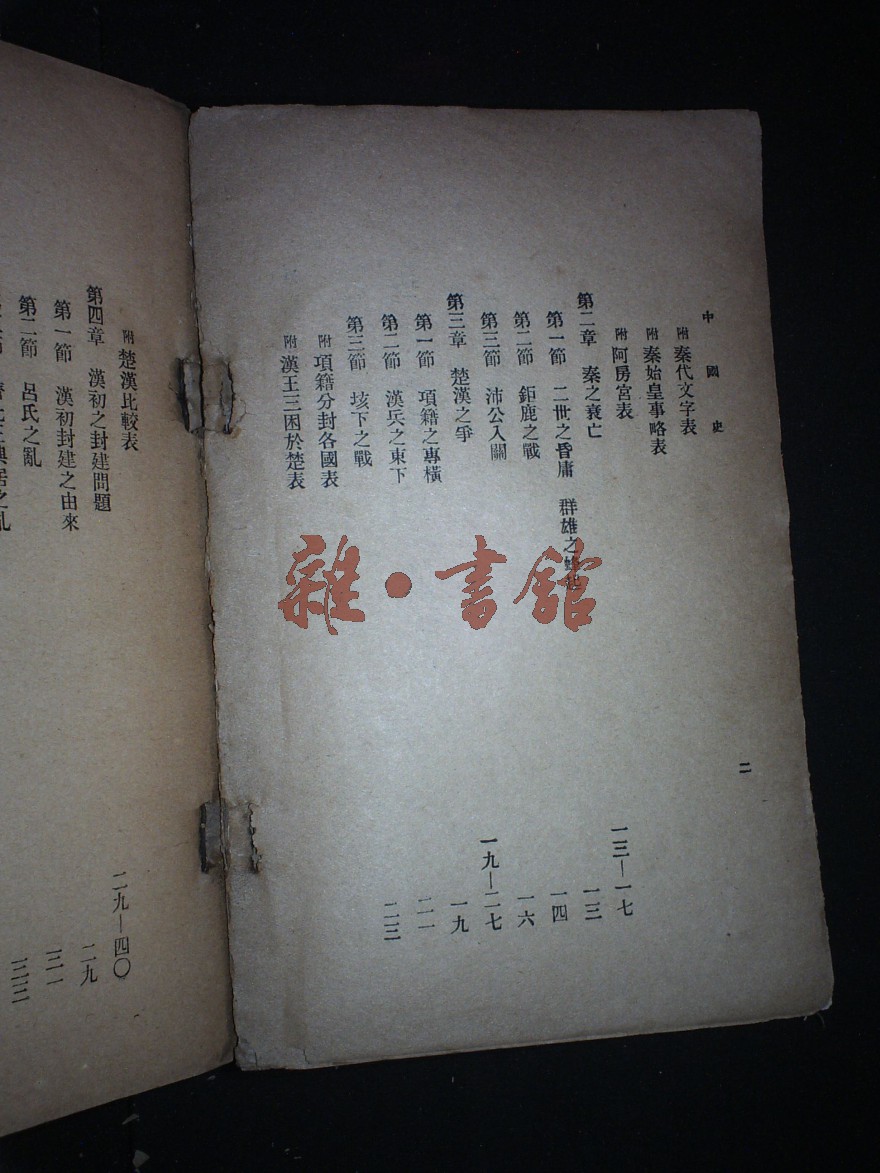 中國史
二
附 秦代文字表
附 秦始皇事略表
附 阿房宮表
第二章 秦之衰亡 一三—一七
第一節 二世之昏庸 群雄之蜂起 一三
第二節 鉅鹿之戰 一四
第三節 沛公入關 一六
第三章 楚漢之爭 一九—二七
第一節 項籍之專橫 一九
第二節 漢兵之東下 二一
第三節 垓下之戰 二三
附 項籍分封各國表
附 漢王三困於楚表
附 楚漢比較表
第四章 漢初之封建問題 二九—四〇
第一節 漢初封建之由來 二九
第二節 呂氏之亂 三一
興居之亂 三三
雜·書館